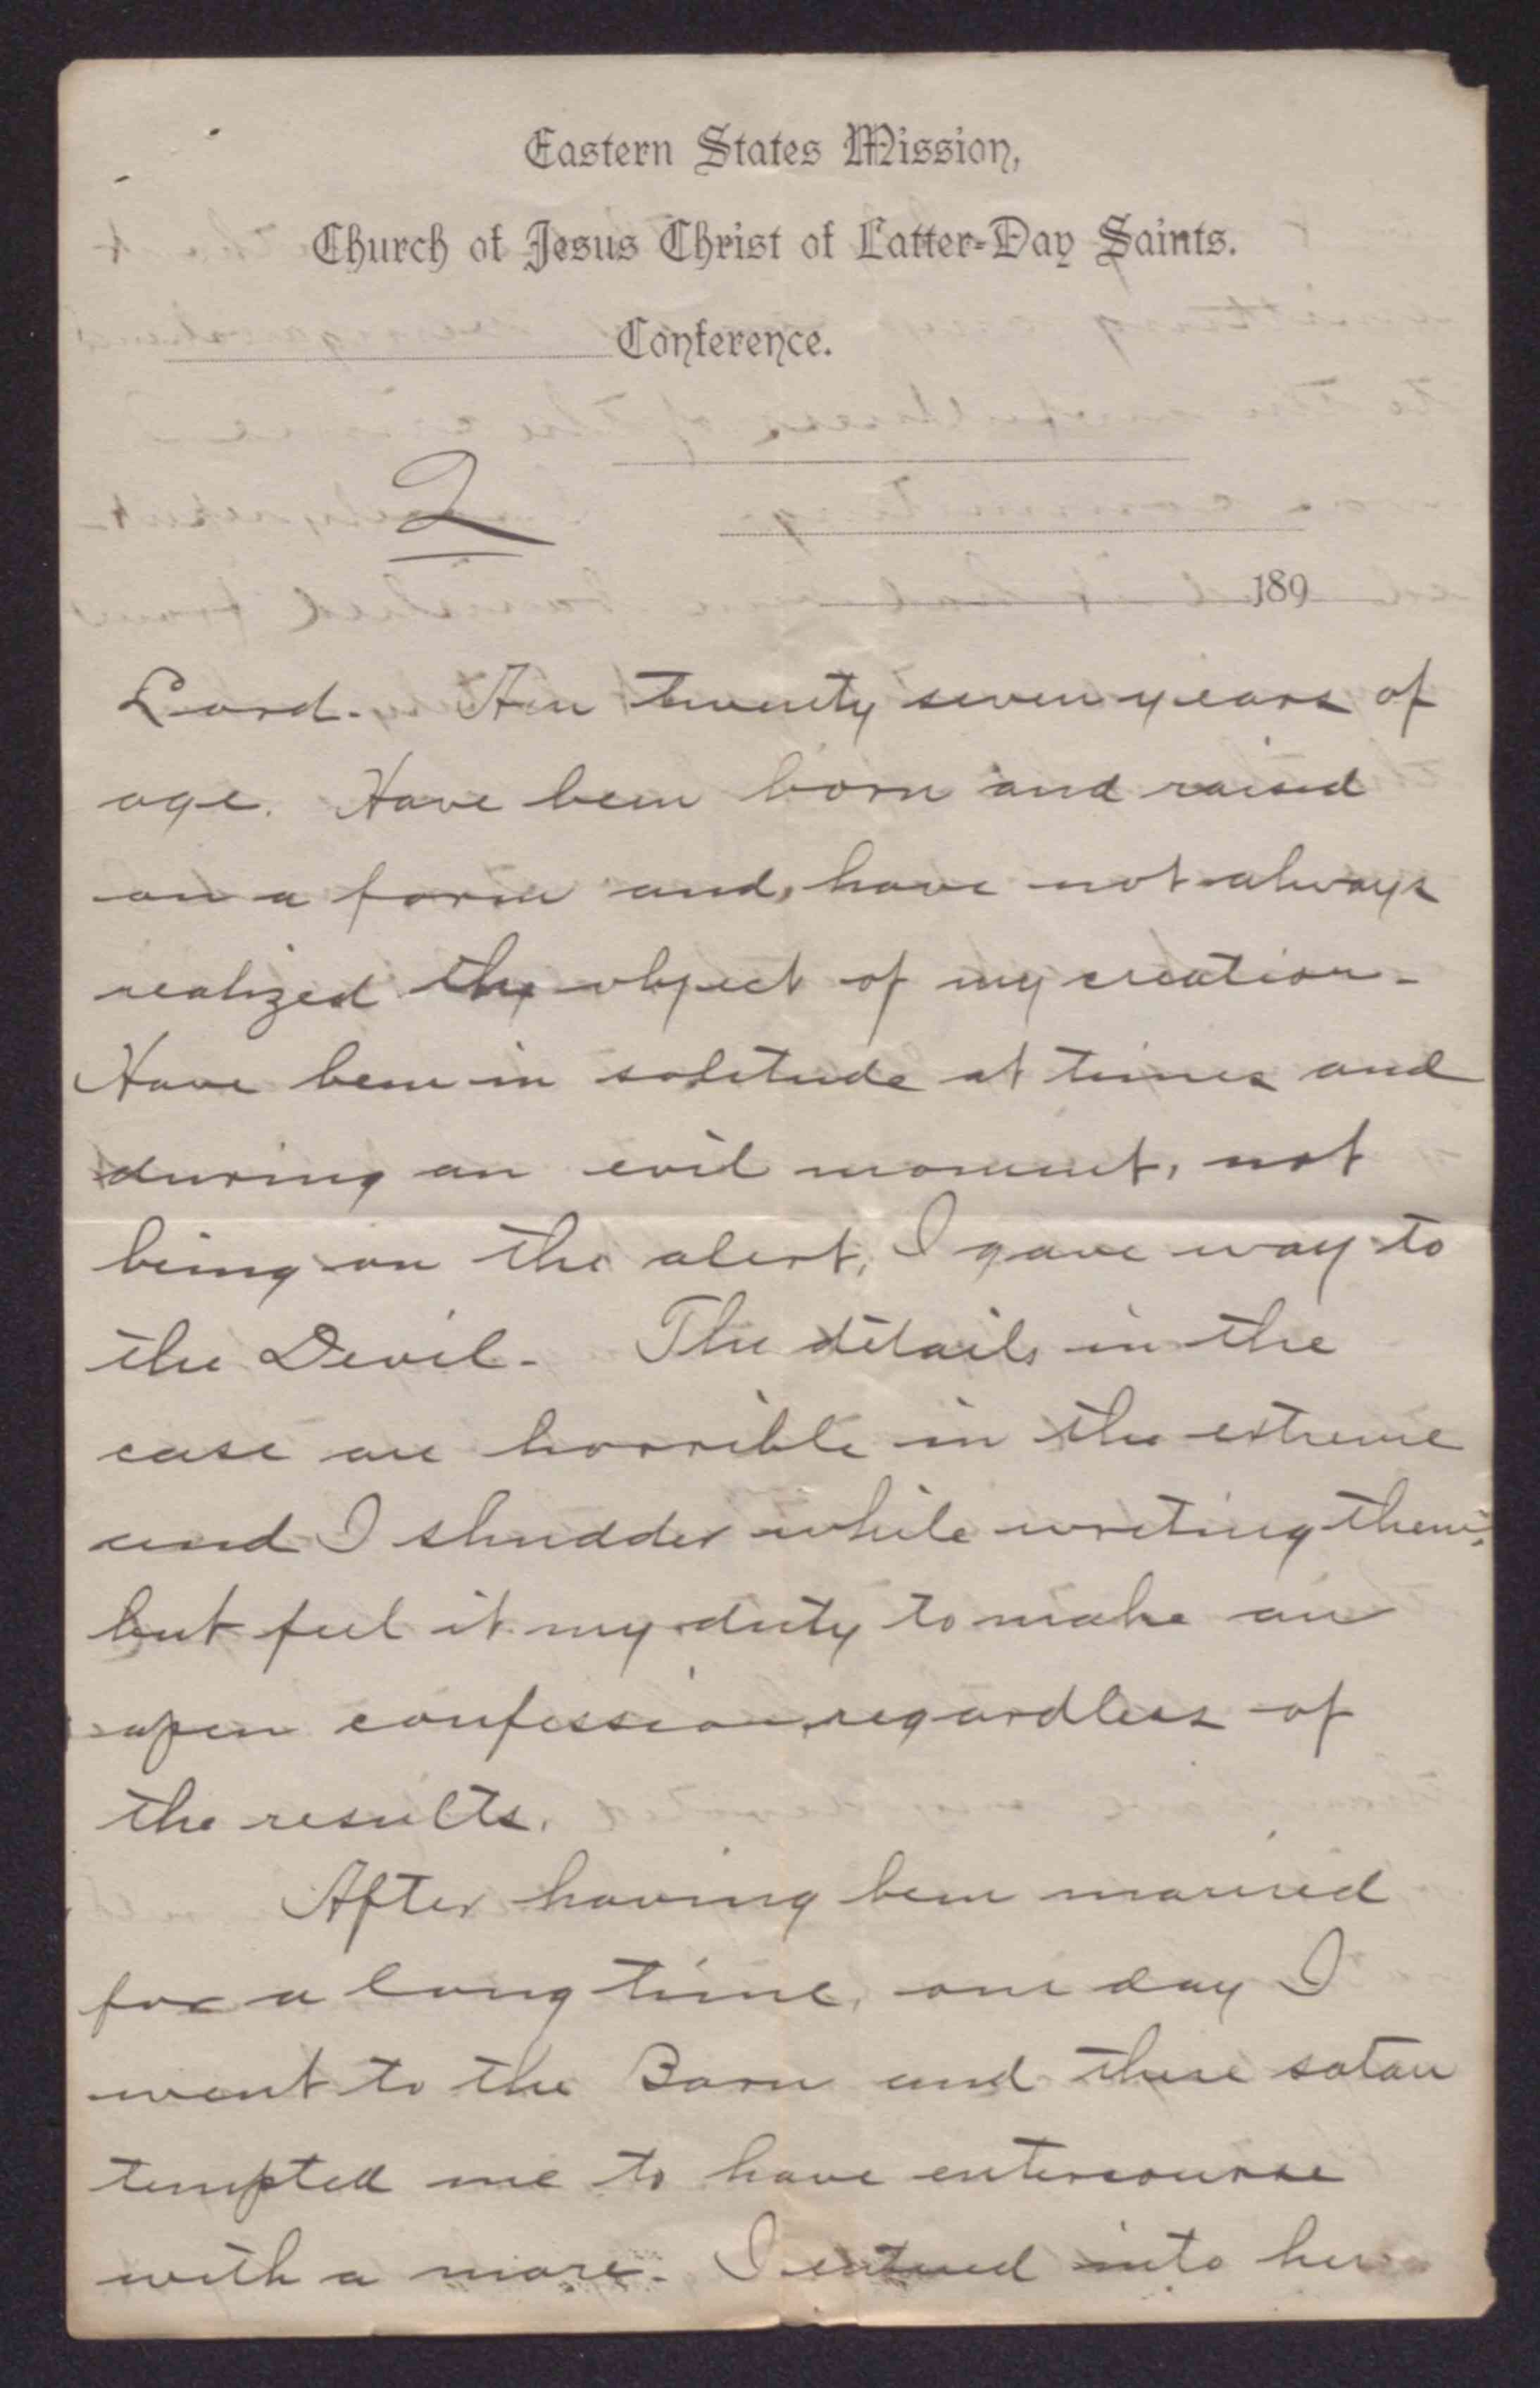 Eastern States Mission,
Church of Jesus Christ of Latter-Day Saints.
Conference.
2
189
Lord. Am twenty seven years of
age. Have been born and raised
on a farm and, have not always
realized the object of my creation-
Have been in solitude at times and
during an evil moment, not
being on the alert, I gave way to
the Devil- The details in the
case are horrible in the extreme
and I shudder while writing them,
but feel it my duty to make an
open confession, regardless of
the results.
After having been married
for a long time, one day I
went to the Barn and there satan
tempted me to have entercourse
with a mare. I entered into her